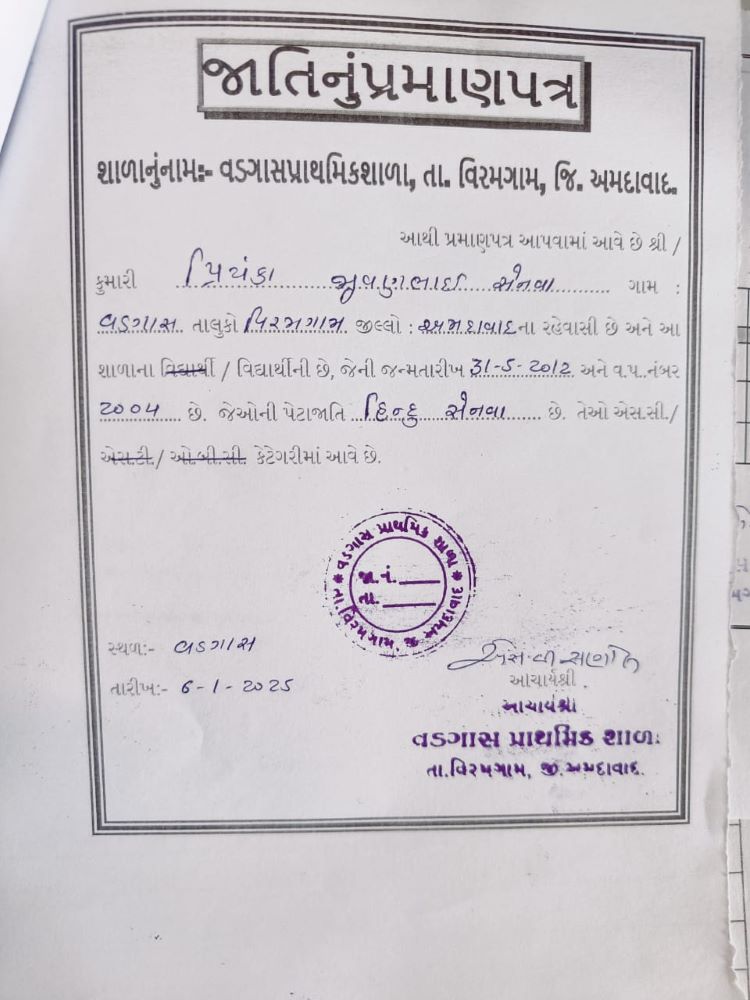 જાતિનુંપ્રમાણપત્ર
શાળાનુંનામઃ- વડગાસપ્રાથમિકશાળા, તા. વિરમગામ, જિ. અમદાવાદ.
આથી પ્રમાણપત્ર આપવામાં આવે છે શ્રી /
કુમારી પ્રિયંકા જીવણભાઈ સેનવા ગામ :
વડગાસ તાલુકો વિરમગામ જીલ્લો : અમદાવાદના રહેવાસી છે અને આ
શાળાના વિદ્યાર્થી / વિદ્યાર્થીની છે, જેની જન્મતારીખ 31-5-2012 અને વ.પ. નંબર
2004 છે. જેઓની પેટાજાતિ હિન્દુ સેનવા છે. તેઓ એસ.સી./
એસ.ટી./ ઓ.બી.સી. કેટેગરીમાં આવે છે.
* વડગાસ પ્રાથમિક શાળા *
જા.નં.
તા.
તા.વિરમગામ, જી.અમદાવાદ
સ્થળ:- વડગાસ
તારીખ:- 6-1-2025
આચાર્યશ્રી
આચાર્યશ્રી
વડગાસ પ્રાથમિક શાળા
તા.વિરમગામ, જી.અમદાવાદ.